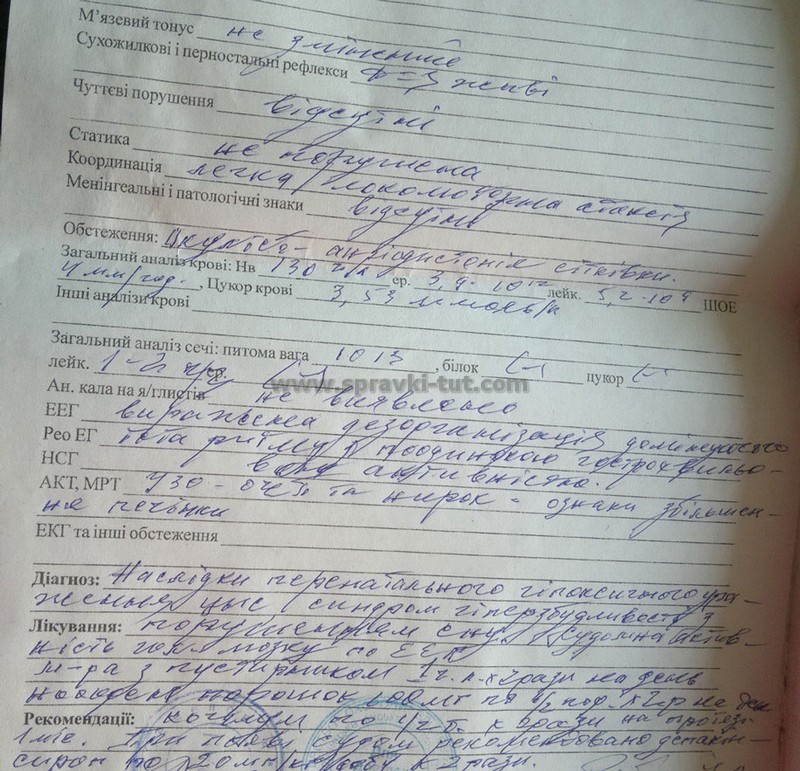 М'язевий тонус не змінений
Сухожилкові і перностальні рефлекси живі
Чуттєві порушення відсутні
Статика не порушена
Координація легка локомоторна атаксія
Менінгеальні і патологічні знаки відсутні
Обстеження: Окуліст - ангіодистонія сітківки.
Загальний аналіз крові: Нв 130 г/л ер. лейк. ШОЕ
4 мм/год., Цукор крові 3,53 ммоль/л
Інші аналізи крові
Загальний аналіз сечі: питома вага 1013, білок (-) цукор (-)
лейк. 1-2 ер. (-)
www.spravki-tut.com
Ан. кала на я/глистів не виявлено
ЕЕГ виражена дезорганізація домінуючого
Рео ЕГ ритму поодинокою
НСГ активністю.
АКТ, МРТ УЗО - та нирок - ознаки збільшен-
ня печінки
ЕКГ та інші обстеження
Діагноз: Наслідки перенатального гіпоксичного ура-
ження цнс синдром гіперзбудливості з
Лікування: порушенням сну, судомна актив-
ність гол.мозку по ЕЕГ
м-ра з пустирником 1 ч.л. х 2 рази на день
порошок по 1/2 пор. х 2 р на день
Рекомендації: по 1/4 т. х рази на протязі
1 міс. При появі судом рекомендовано депакін-
сироп по х 2 рази.